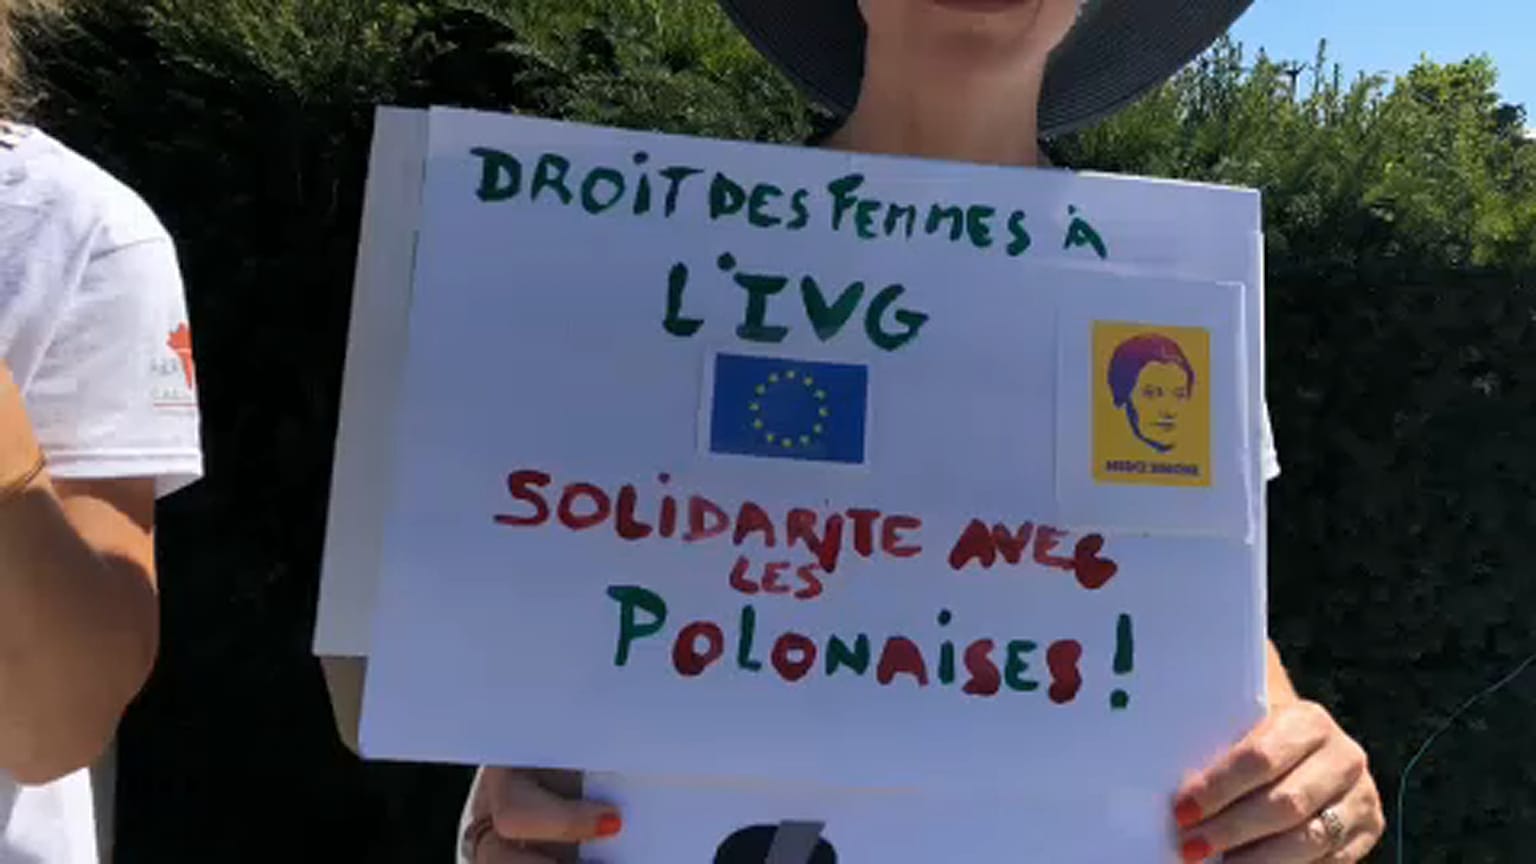 DROIT DES FEMMES À
L'IVG
MERCI SIMONE
SOLIDARITE AVEC
LES
POLONAISES!